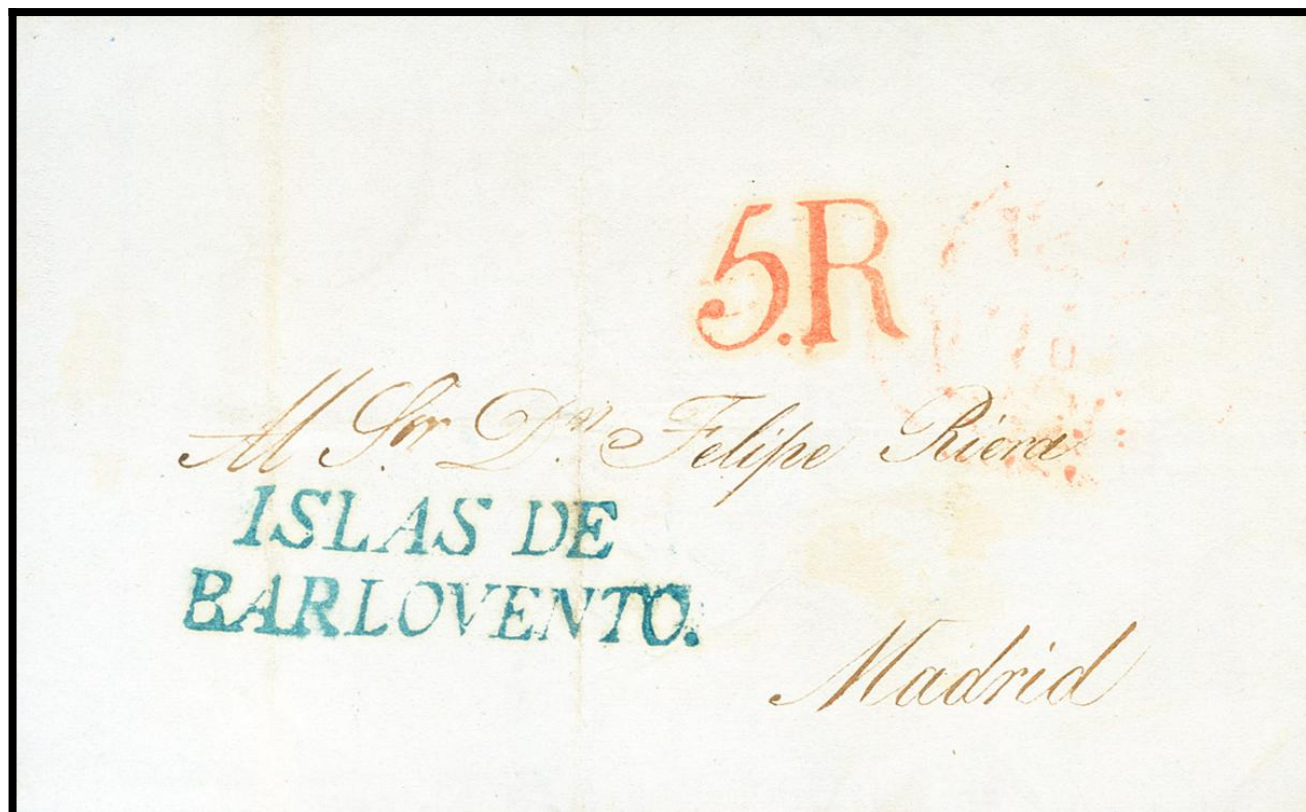 5.R
Al Sor. Dn. Felipe Riera
ISLAS DE
BARLOVENTO.
Madrid